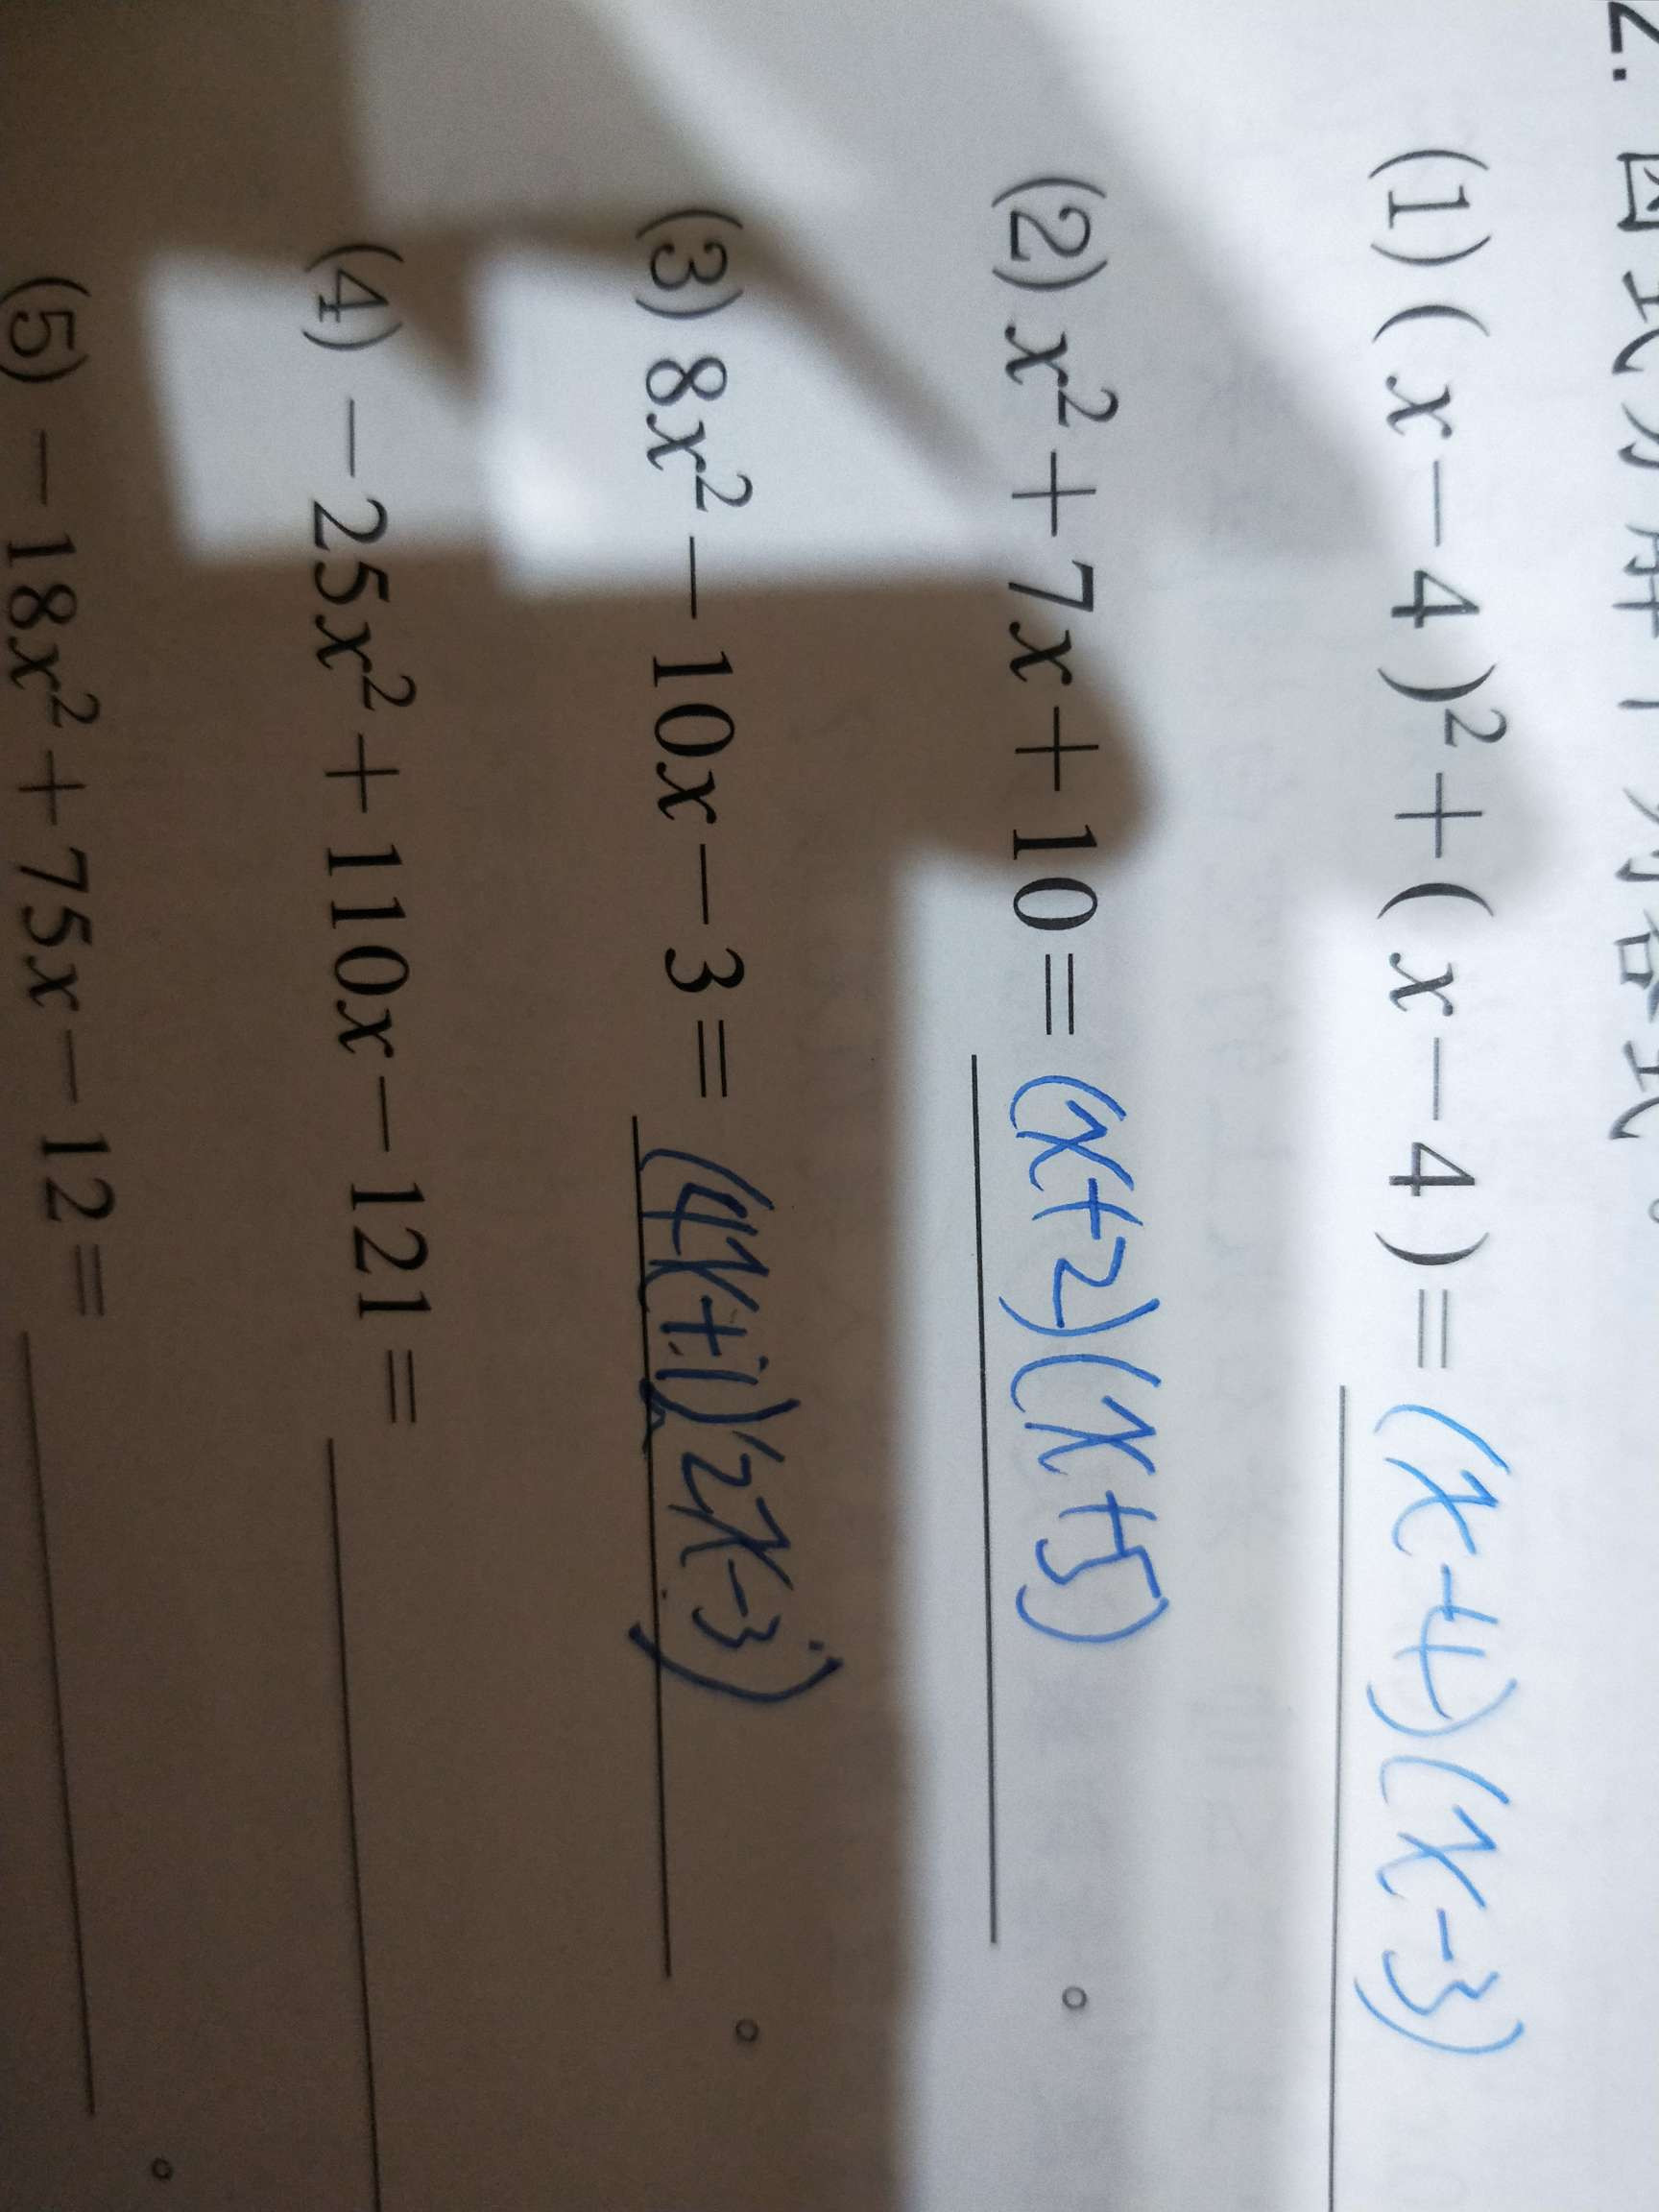 2. 因式分解下列各式。
(1) (x－4)²＋(x－4)＝(x-4)(x-3)
(2) x²＋7x＋10＝(x+2)(x+5)。
(3) 8x²－10x－3＝(4x+1)(2x-3)。
(4) －25x²＋110x－121＝
(5) －18x²＋75x－12＝。